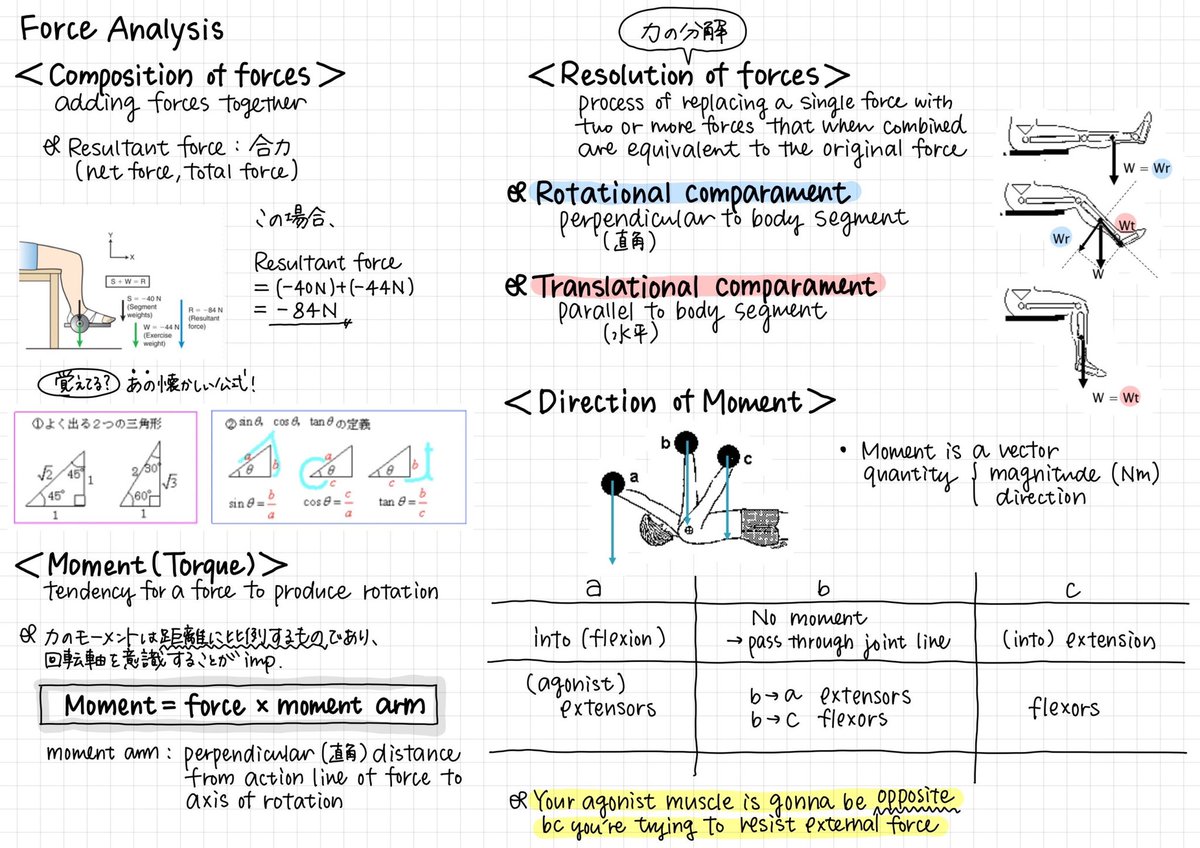 Force Analysis
<Composition of forces>
adding forces together
Resultant force : 合力
(net force, total force)
この場合、
Resultant force
= (-40N)+(-44N)
= -84N
Y
X
S + W = R
S = -40 N
(Segment
weights)
W = -44 N
(Exercise
weight)
R = -84 N
(Resultant
force)
覚えてる? あの懐かしい公式!
①よく出る2つの三角形
√2 45° 1
45°
1
2 30° √3
60°
1
② sinθ, cosθ, tanθの定義
a θ b
a θ c
θ b c
sinθ = b/a
cosθ = c/a
tanθ = b/c
<Moment (Torque)>
tendency for a force to produce rotation
力のモーメントは距離に比例するものであり、
回転軸を意識することが imp.
Moment = force × moment arm
moment arm : perpendicular (直角) distance
from action line of force to
axis of rotation
力の分解
<Resolution of forces>
process of replacing a single force with
two or more forces that when combined
are equivalent to the original force
Rotational comparament
perpendicular to body segment
(直角)
Translational comparament
parallel to body segment
(水平)
W = Wr
Wt
Wr
W
W = Wt
<Direction of Moment>
a
b
c
• Moment is a vector
quantity { magnitude (Nm)
direction
a b c
into (flexion)
No moment
→ pass through joint line
(into) extension
(agonist)
extensors
b→a extensors
b→c flexors
flexors
Your agonist muscle is gonna be opposite
bc you're trying to resist external force